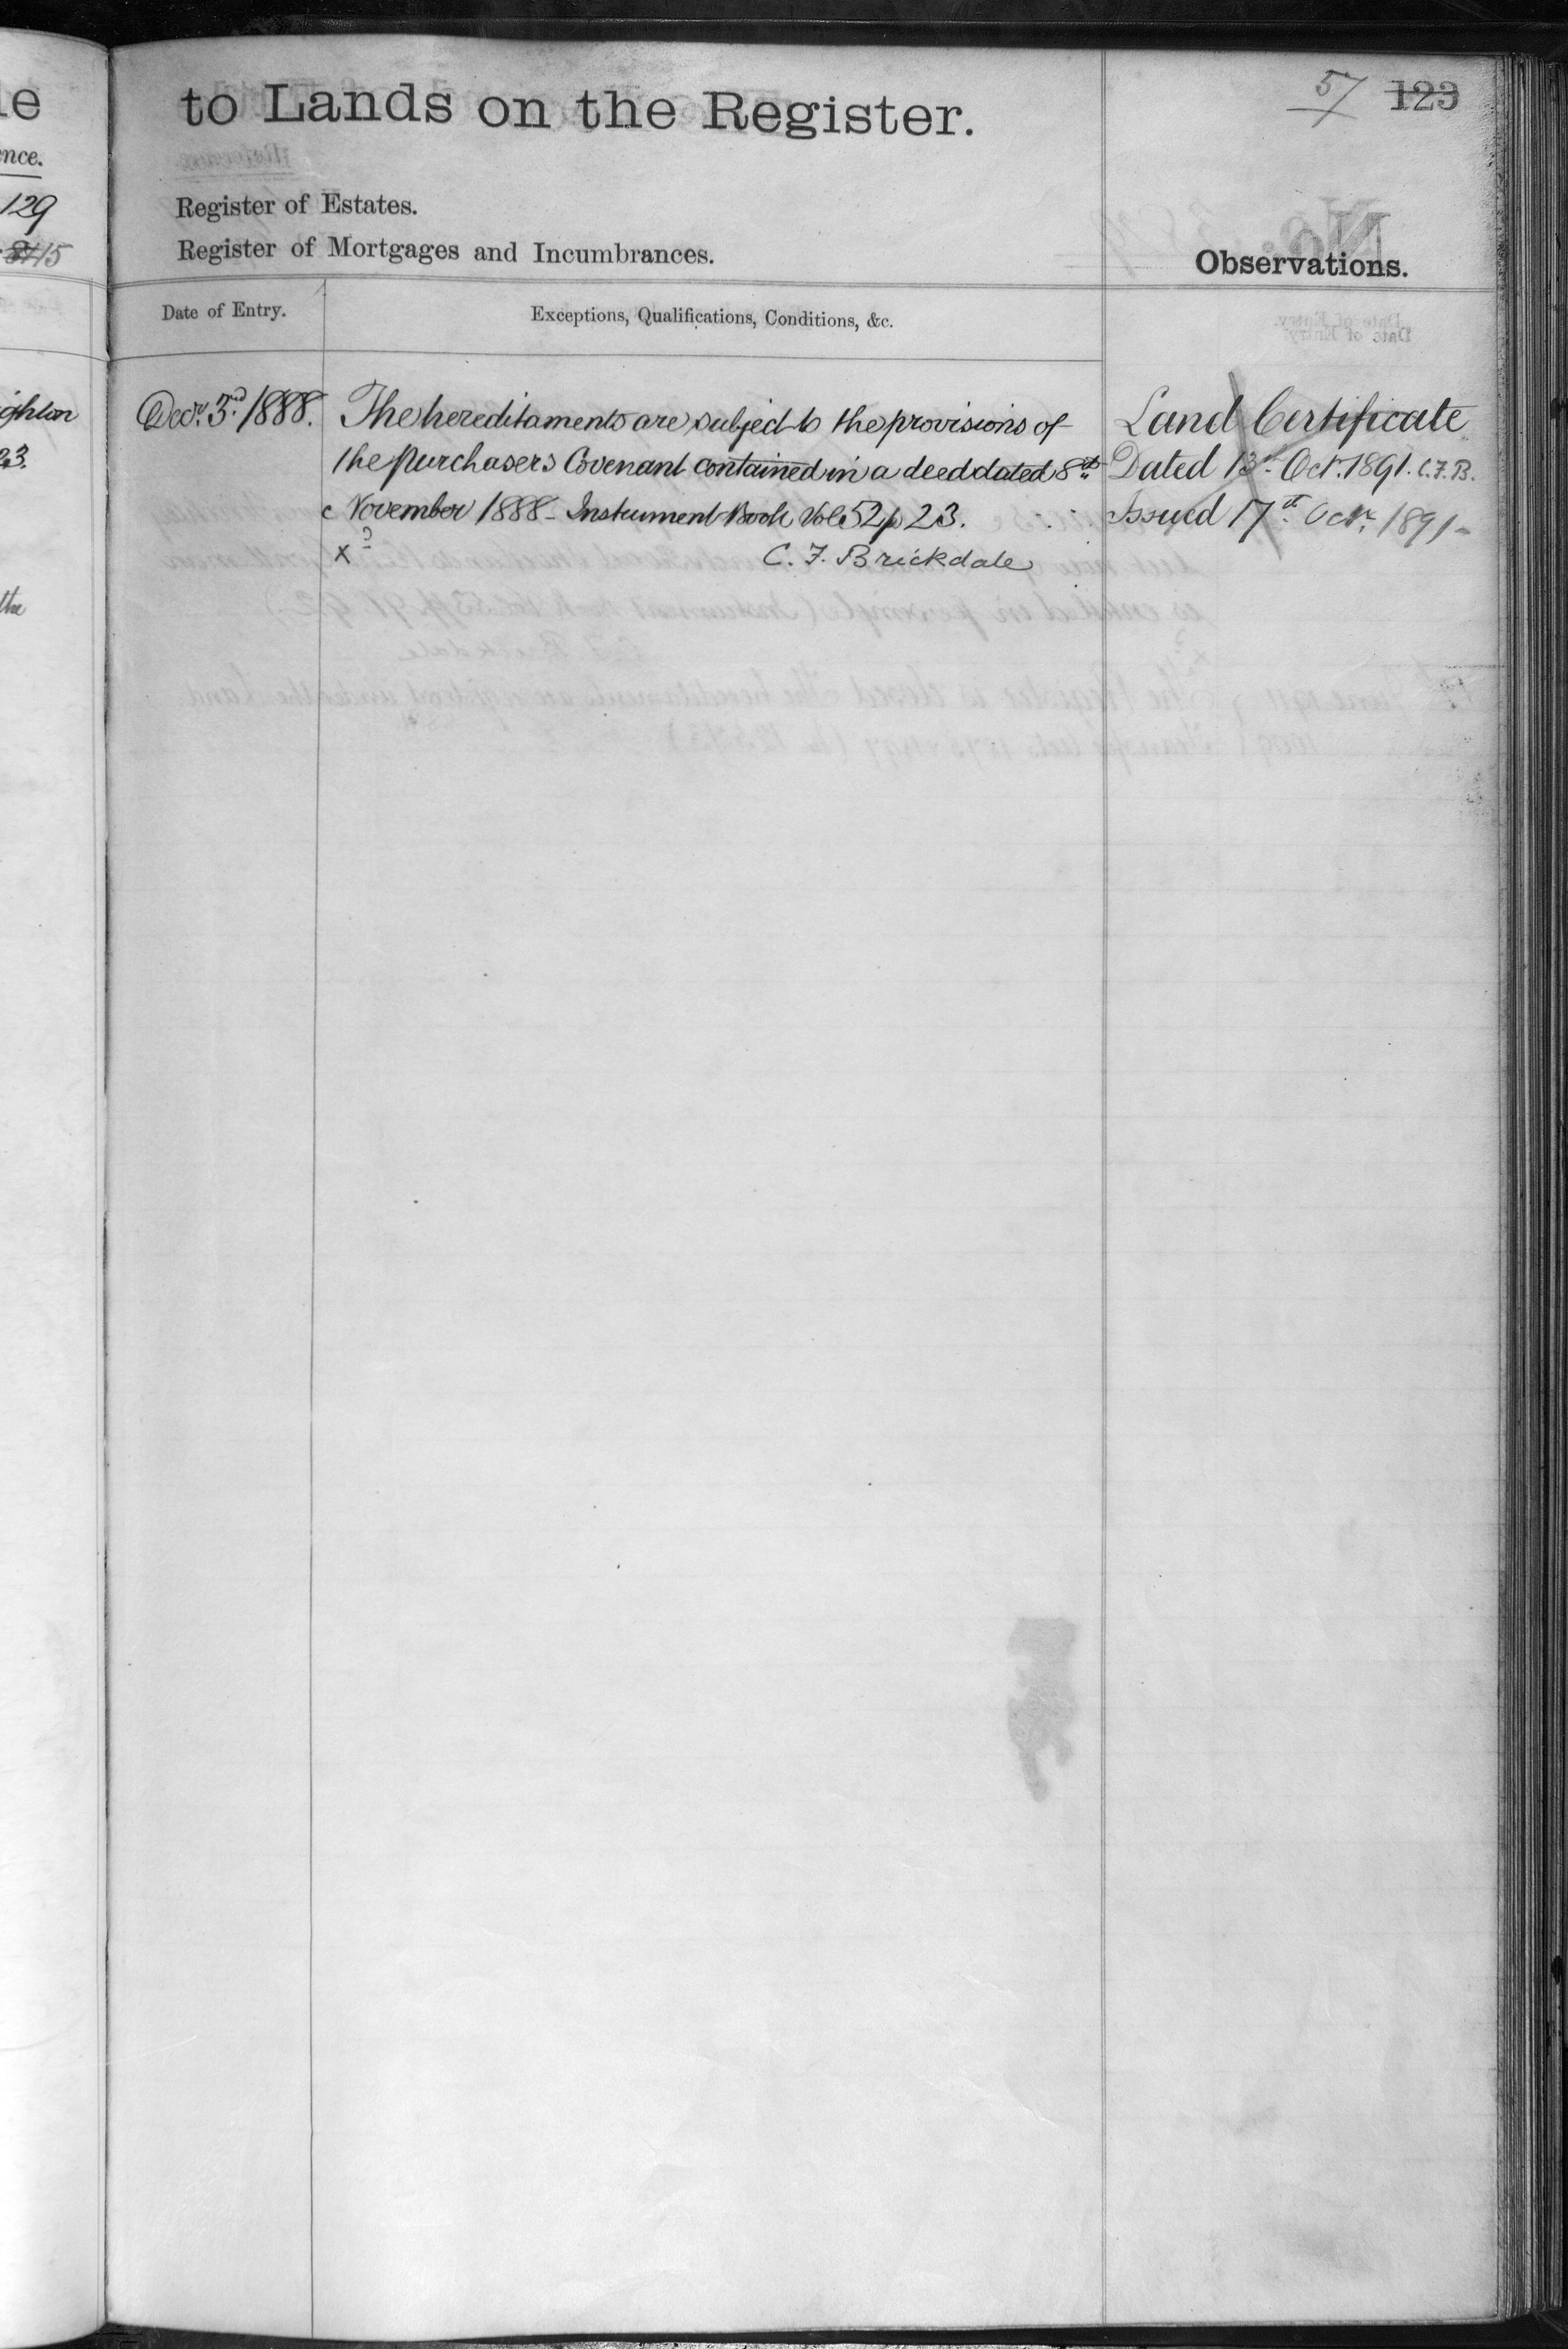 le
nce.
129
15
ighton
23.
the
to Lands on the Register.
57 123
Register of Estates.
Register of Mortgages and Incumbrances.
Observations.
Date of Entry.
Exceptions, Qualifications, Conditions, &c.
Decr. 3rd 1888.
The hereditaments are subject to the provisions of
the purchasers Covenant contained in a deed dated 8th
November 1888 - Instrument Book Vol 52 p 23.
x
C. F. Brickdale
Land Certificate
Dated 13th Oct. 1891. C.F.B.
Issued 17th Octr. 1891 -